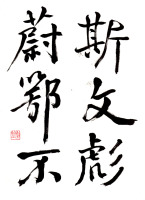 斯文彪
蔚鄂不